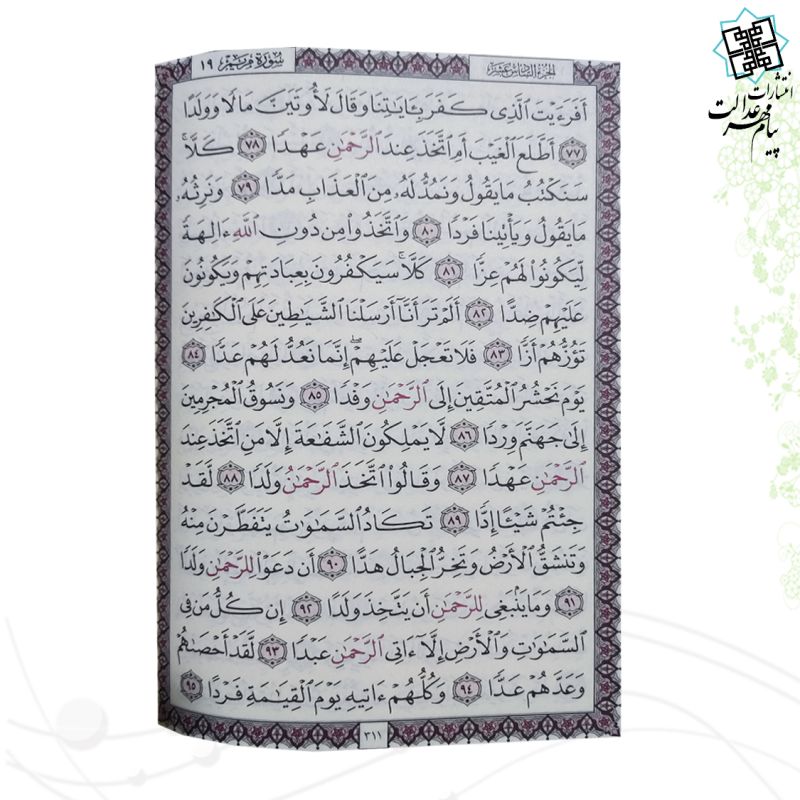 انتشارات
پیام مهر عدالت
الجزء السادس عشر
سورة مريم ١٩
أَفَرَءَيْتَ ٱلَّذِى كَفَرَ بِـَٔايَـٰتِنَا وَقَالَ لَأُوتَيَنَّ مَالًا وَوَلَدًا
٧٧ أَطَّلَعَ ٱلْغَيْبَ أَمِ ٱتَّخَذَ عِندَ ٱلرَّحْمَـٰنِ عَهْدًا ٧٨ كَلَّا ۚ
سَنَكْتُبُ مَا يَقُولُ وَنَمُدُّ لَهُۥ مِنَ ٱلْعَذَابِ مَدًّا ٧٩ وَنَرِثُهُۥ
مَا يَقُولُ وَيَأْتِينَا فَرْدًا ٨٠ وَٱتَّخَذُوا۟ مِن دُونِ ٱللَّهِ ءَالِهَةً
لِّيَكُونُوا۟ لَهُمْ عِزًّا ٨١ كَلَّا ۚ سَيَكْفُرُونَ بِعِبَادَتِهِمْ وَيَكُونُونَ
عَلَيْهِمْ ضِدًّا ٨٢ أَلَمْ تَرَ أَنَّآ أَرْسَلْنَا ٱلشَّيَـٰطِينَ عَلَى ٱلْكَـٰفِرِينَ
تَؤُزُّهُمْ أَزًّا ٨٣ فَلَا تَعْجَلْ عَلَيْهِمْ ۖ إِنَّمَا نَعُدُّ لَهُمْ عَدًّا ٨٤
يَوْمَ نَحْشُرُ ٱلْمُتَّقِينَ إِلَى ٱلرَّحْمَـٰنِ وَفْدًا ٨٥ وَنَسُوقُ ٱلْمُجْرِمِينَ
إِلَىٰ جَهَنَّمَ وِرْدًا ٨٦ لَّا يَمْلِكُونَ ٱلشَّفَـٰعَةَ إِلَّا مَنِ ٱتَّخَذَ عِندَ
ٱلرَّحْمَـٰنِ عَهْدًا ٨٧ وَقَالُوا۟ ٱتَّخَذَ ٱلرَّحْمَـٰنُ وَلَدًا ٨٨ لَّقَدْ
جِئْتُمْ شَيْـًٔا إِدًّا ٨٩ تَكَادُ ٱلسَّمَـٰوَٰتُ يَتَفَطَّرْنَ مِنْهُ
وَتَنشَقُّ ٱلْأَرْضُ وَتَخِرُّ ٱلْجِبَالُ هَدًّا ٩٠ أَن دَعَوْا۟ لِلرَّحْمَـٰنِ وَلَدًا
٩١ وَمَا يَنۢبَغِى لِلرَّحْمَـٰنِ أَن يَتَّخِذَ وَلَدًا ٩٢ إِن كُلُّ مَن فِى
ٱلسَّمَـٰوَٰتِ وَٱلْأَرْضِ إِلَّآ ءَاتِى ٱلرَّحْمَـٰنِ عَبْدًا ٩٣ لَّقَدْ أَحْصَىٰهُمْ
وَعَدَّهُمْ عَدًّا ٩٤ وَكُلُّهُمْ ءَاتِيهِ يَوْمَ ٱلْقِيَـٰمَةِ فَرْدًا ٩٥
٣١١